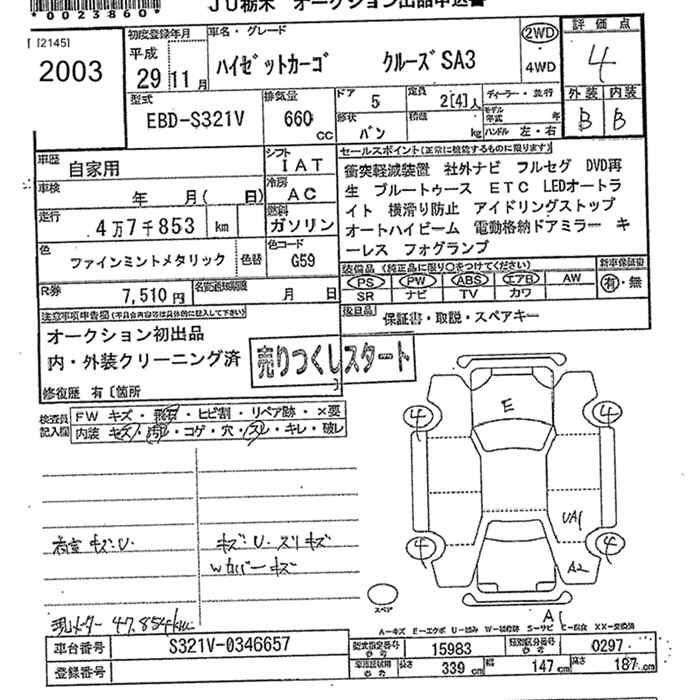 *00023860*
JU栃木 オークション出品申込書
[2145]
2003
初度登録年月
平成
29 11月
車名・グレード
ハイゼットカーゴ クルーズSA3
2WD
4WD
評価点
4
外装 内装
B B
型式
EBD-S321V
排気量
660 cc
ドア
5
定員
2[4]人
形状
バン
積載
kg
ディーラー・並行
モデル年式 年
ハンドル 左・右
車歴
自家用
シフト
IAT
車検
年 月( 日)
冷房
AC
走行
4万7千853 km
燃料
ガソリン
色
ファインミントメタリック
色替
色コード
G59
R券
7,510円
名変通知期限
月 日
セールスポイント(正常に機能するものに限ります)
衝突軽減装置 社外ナビ フルセグ DVD再
生 ブルートゥース ETC LEDオートラ
イト 横滑り防止 アイドリングストップ
オートハイビーム 電動格納ドアミラー キ
ーレス フォグランプ
装備品(純正品に限り○をつけてください)
PS PW ABS エアB AW
SR ナビ TV カワ
新車保証書
有・無
後日品
保証書・取説・スペアキー
注意事項申告欄(不具合内容等は具体的に記入して下さい)
オークション初出品
内・外装クリーニング済
修復歴 有〔箇所 〕
売りつくしスタート
検査員記入欄
FW キズ・飛石・ヒビ割・リペア跡・×要
内装 キズ・汚れ・コゲ・穴・スレ・キレ・破レ
荷室キズ・U
キズ・U・スリキズ
Wカバーキズ
現メーター 47,854km
E
4 4
4 4
UA1
A2
A1
スペア
A=キズ E=エクボ U=凹み W=補修跡 S=サビ C=腐食 XX=交換済
車台番号
S321V-0346657
登録番号
型式指定番号 参考
15983
類別区分番号 参考
0297
長さ 339 cm
幅 147 cm
高さ 187 cm